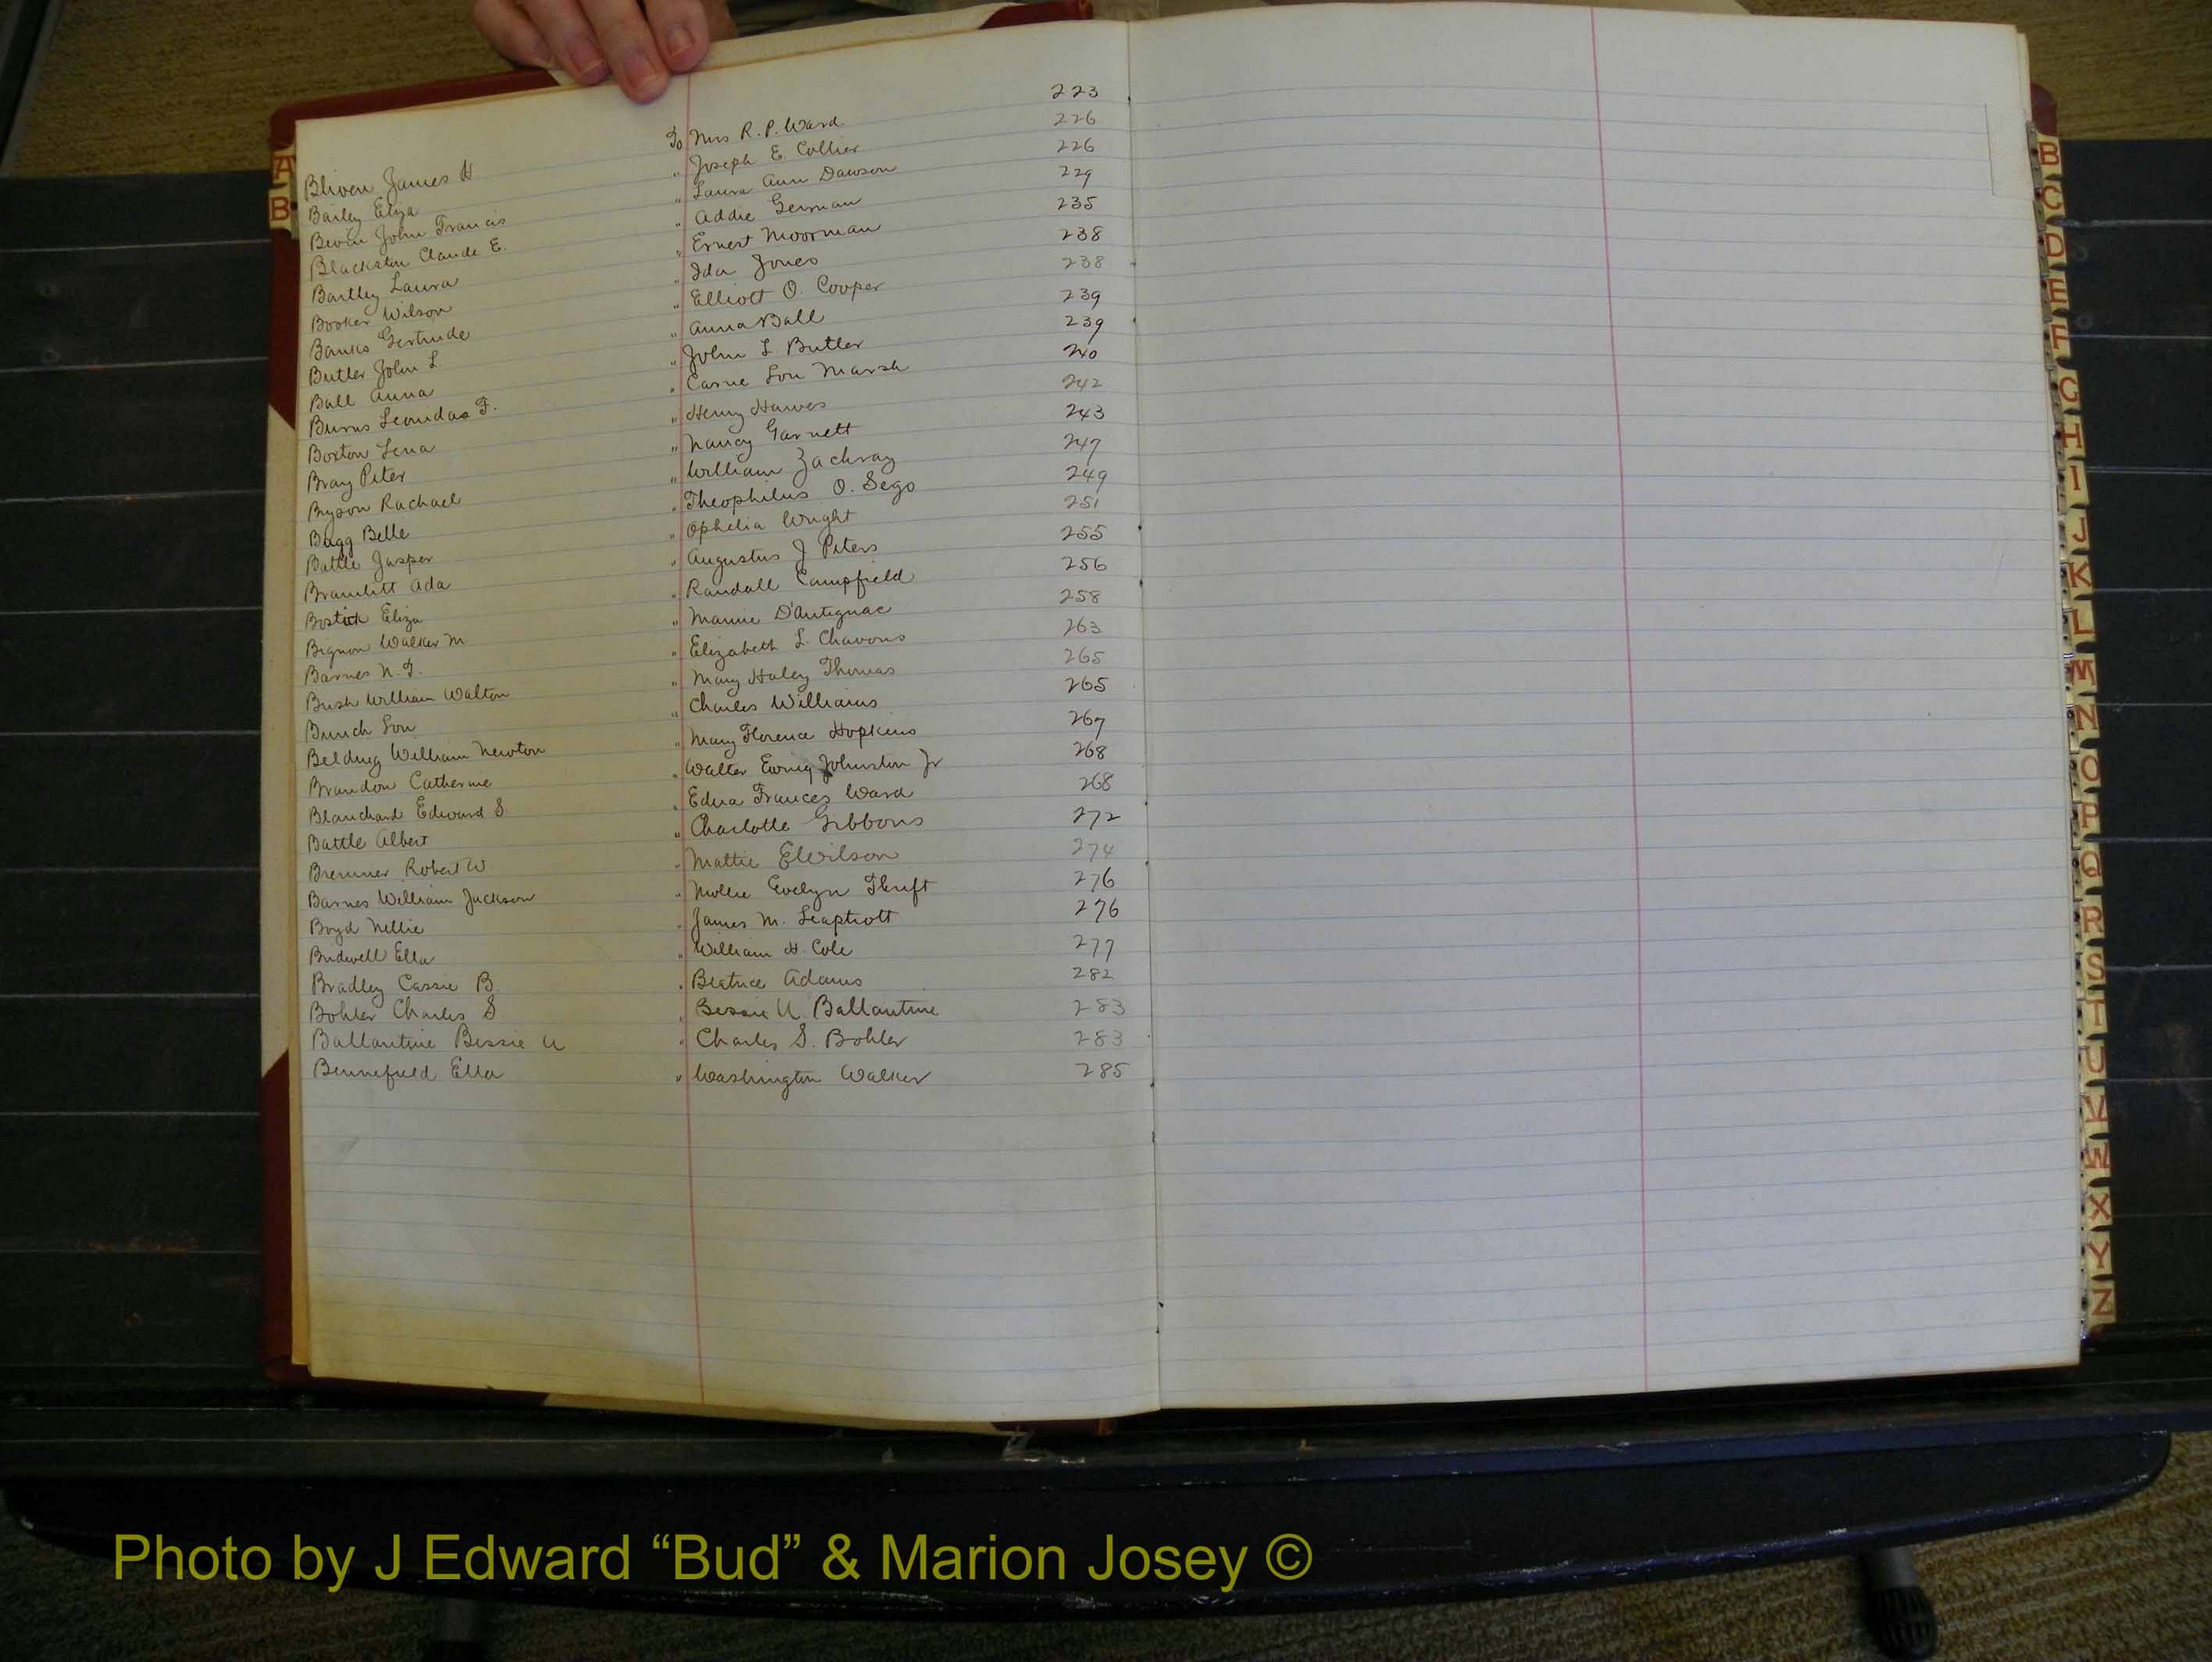 Bliven James H To Mrs R. P. Ward 223
Bailey Eliza " Joseph E. Collier 226
Bevin John Francis " Laura Ann Dawson 226
Blackston Claude E. " Addie German 229
Bartley Laura " Ernest Moorman 235
Booker Wilson " Ida Jones 238
Banks Gertrude " Elliott O. Cooper 238
Butler John L. " Anna Ball 239
Ball Anna " John L Butler 239
Burns Leonidas F. " Carrie Lou Marsh 240
Boxton Lena " Henry Hawes 242
Bray Peter " Nancy Garnett 243
Bryson Rachael " William Zachray 247
Bugg Belle " Theophilus O. Sego 249
Battle Jasper " Ophelia Wright 251
Bramlitt Ada " Augustus J Peters 255
Bostick Eliza " Randall Campfield 256
Bignon Walker M " Mamie D'Antignac 258
Barnes N. F. " Elizabeth L. Chavous 263
Bush William Walton " Mary Haley Thomas 265
Bunch Lou " Charles Williams 265
Belding William Newton " Mary Florence Hopkins 267
Brandon Catherine " Walter Ewing Johnston Jr 268
Blanchard Edward S. " Edna Frances Ward 268
Battle Albert " Charlotte Gibbons 272
Bremner Robert W. " Mattie E Wilson 274
Barnes William Jackson " Mollie Evelyn Thrift 276
Boyd Nellie " James M. Leaptrott 276
Bridwell Ella " William H. Cole 277
Bradley Cassie B. " Beatrice Adams 282
Bohler Charles S " Bessie U Ballantine 283
Ballantine Bessie U " Charles S. Bohler 283
Bennefield Ella " Washington Walker 285
A
B
B
C
D
E
F
G
H
I
J
K
L
M
N
O
P
Q
R
S
T
U
V
W
X
Y
Z
Photo by J Edward “Bud” & Marion Josey ©